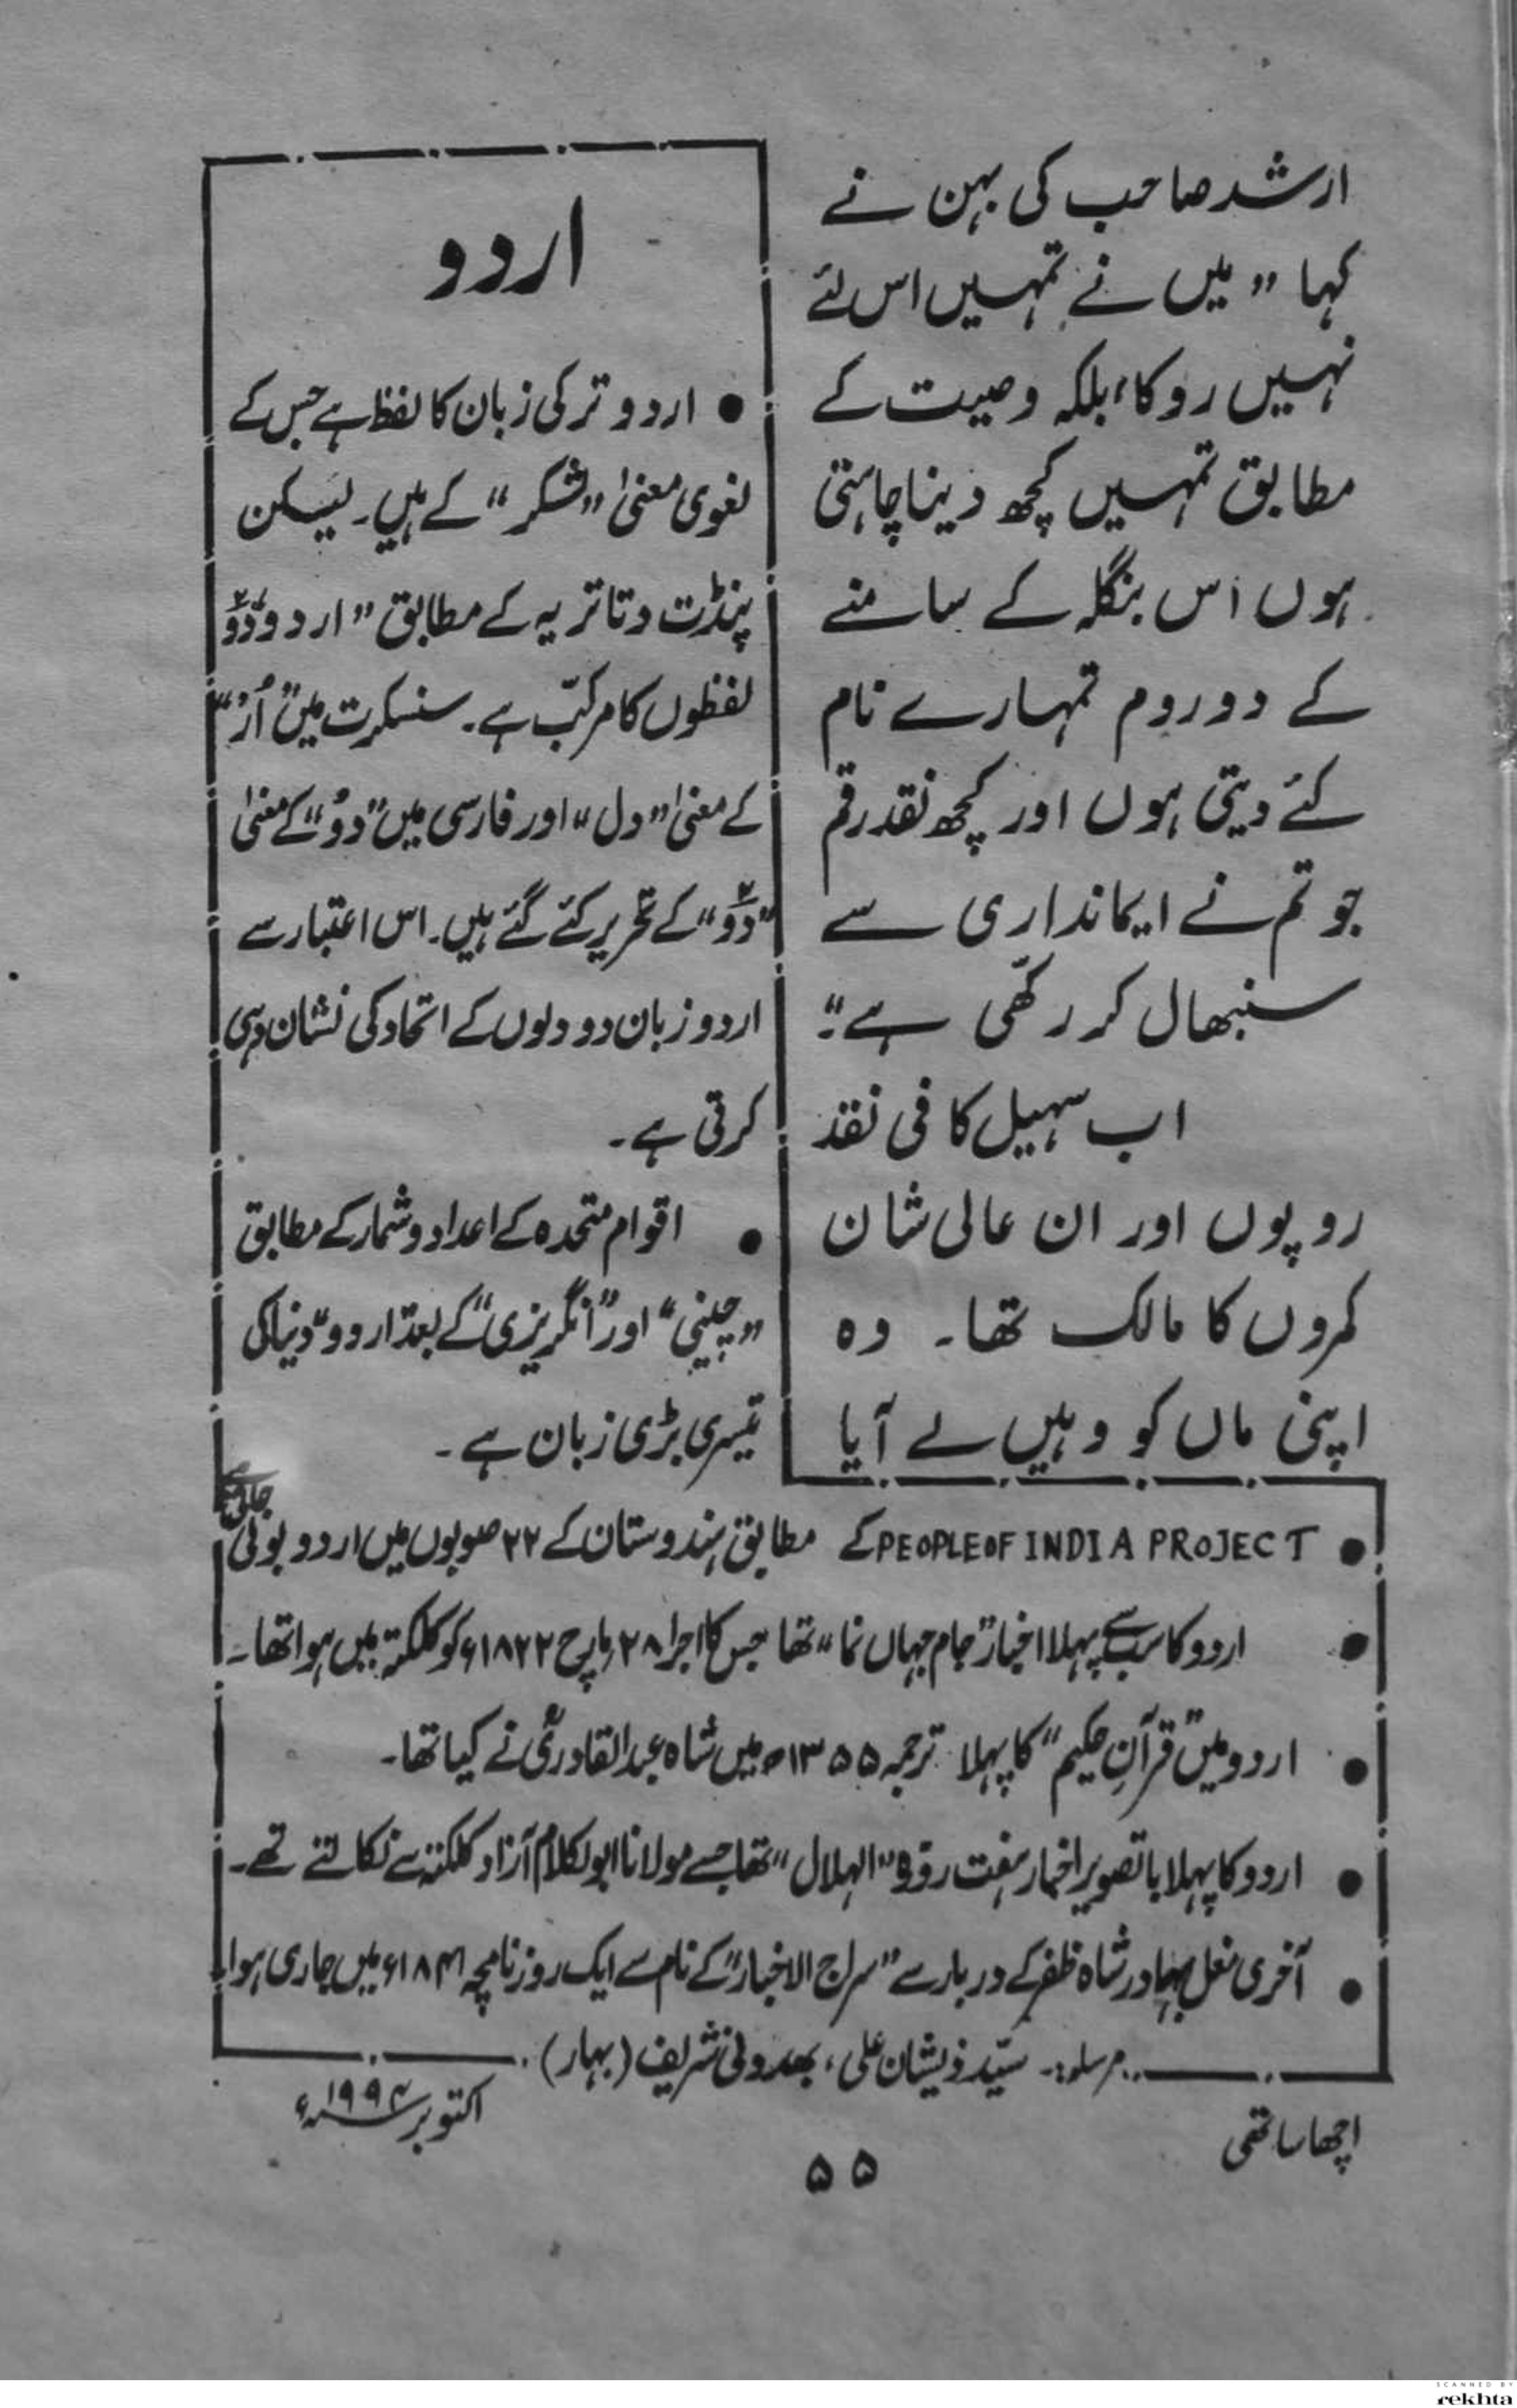 ارشد صاحب کی بہن نے
کہا ”میں نے تمہیں اس لئے
نہیں روکا، بلکہ وصیت کے
مطابق تمہیں کچھ دینا چاہتی
ہوں اس بنگلہ کے سامنے
کے دو روم تمہارے نام
کئے دیتی ہوں اور کچھ نقد رقم
جو تم نے ایمانداری سے
سنبھال کر رکھّی ہے“۔
اب سہیل کافی نقد
روپوں اور ان عالی شان
کمروں کا مالک تھا۔ وہ
اپنی ماں کو وہیں لے آیا
اردو
• اردو ترکی زبان کا لفظ ہے جس کے
لغوی معنیٰ ”لشکر“ کے ہیں۔ لیکن
پنڈت دتاتریہ کے مطابق ”اردو“ دوؔ
لفظوں کا مرکّب ہے۔ سنسکرت میں ”اُرْ“
کے معنیٰ ”دل“ اور فارسی میں ”دوُ“ کے معنیٰ
”دوؔ“ کے تحریر کئے گئے ہیں۔ اس اعتبار سے
اردو زبان دو دلوں کے اتحاد کی نشان دہی
کرتی ہے۔
• اقوام متحدہ کے اعداد و شمار کے مطابق
”چینی“ اور ”انگریزی“ کے بعد ”اردو“ دنیا کی
تیسری بڑی زبان ہے۔
• PEOPLE OF INDIA PROJECT کے مطابق ہندوستان کے ۲۲ صوبوں میں اردو بولی جاتی ہے
• اردو کا سب سے پہلا اخبار ”جام جہاں نما“ تھا جس کا اجرا ۲۸ مارچ ۱۸۲۲ء کو کلکتہ میں ہوا تھا۔
• اردو میں ”قرآنِ حکیم“ کا پہلا ترجمہ ۱۳۵۵ھ میں شاہ عبدالقادریؒ نے کیا تھا۔
• اردو کا پہلا باتصویر اخبار ہفت روزہ ”الہلال“ تھا جسے مولانا ابولکلام آزاد کلکتہ سے نکالتے تھے۔
• آخری مغل بہادر شاہ ظفر کے دربار سے ”سراج الاخبار“ کے نام سے ایک روزنامچہ ۱۸۴۱ء میں جاری ہوا۔
مرسلہ:۔ سیّد ذیشان علی، بھدولی شریف (بہار)
اچھا ساتھی
اکتوبر ۱۹۹۴ء
۵۵
SCANNED BY
rekhta